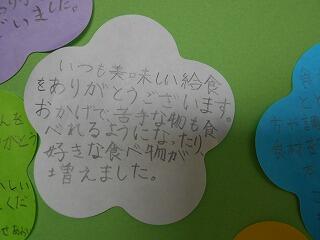 いつも美味しい給食
をありがとうございます。
おかげで、苦きな物も食
べれるようになったり、
好きな食べ物が
増えました。
いました。
んを
がとう
いしい
くだ